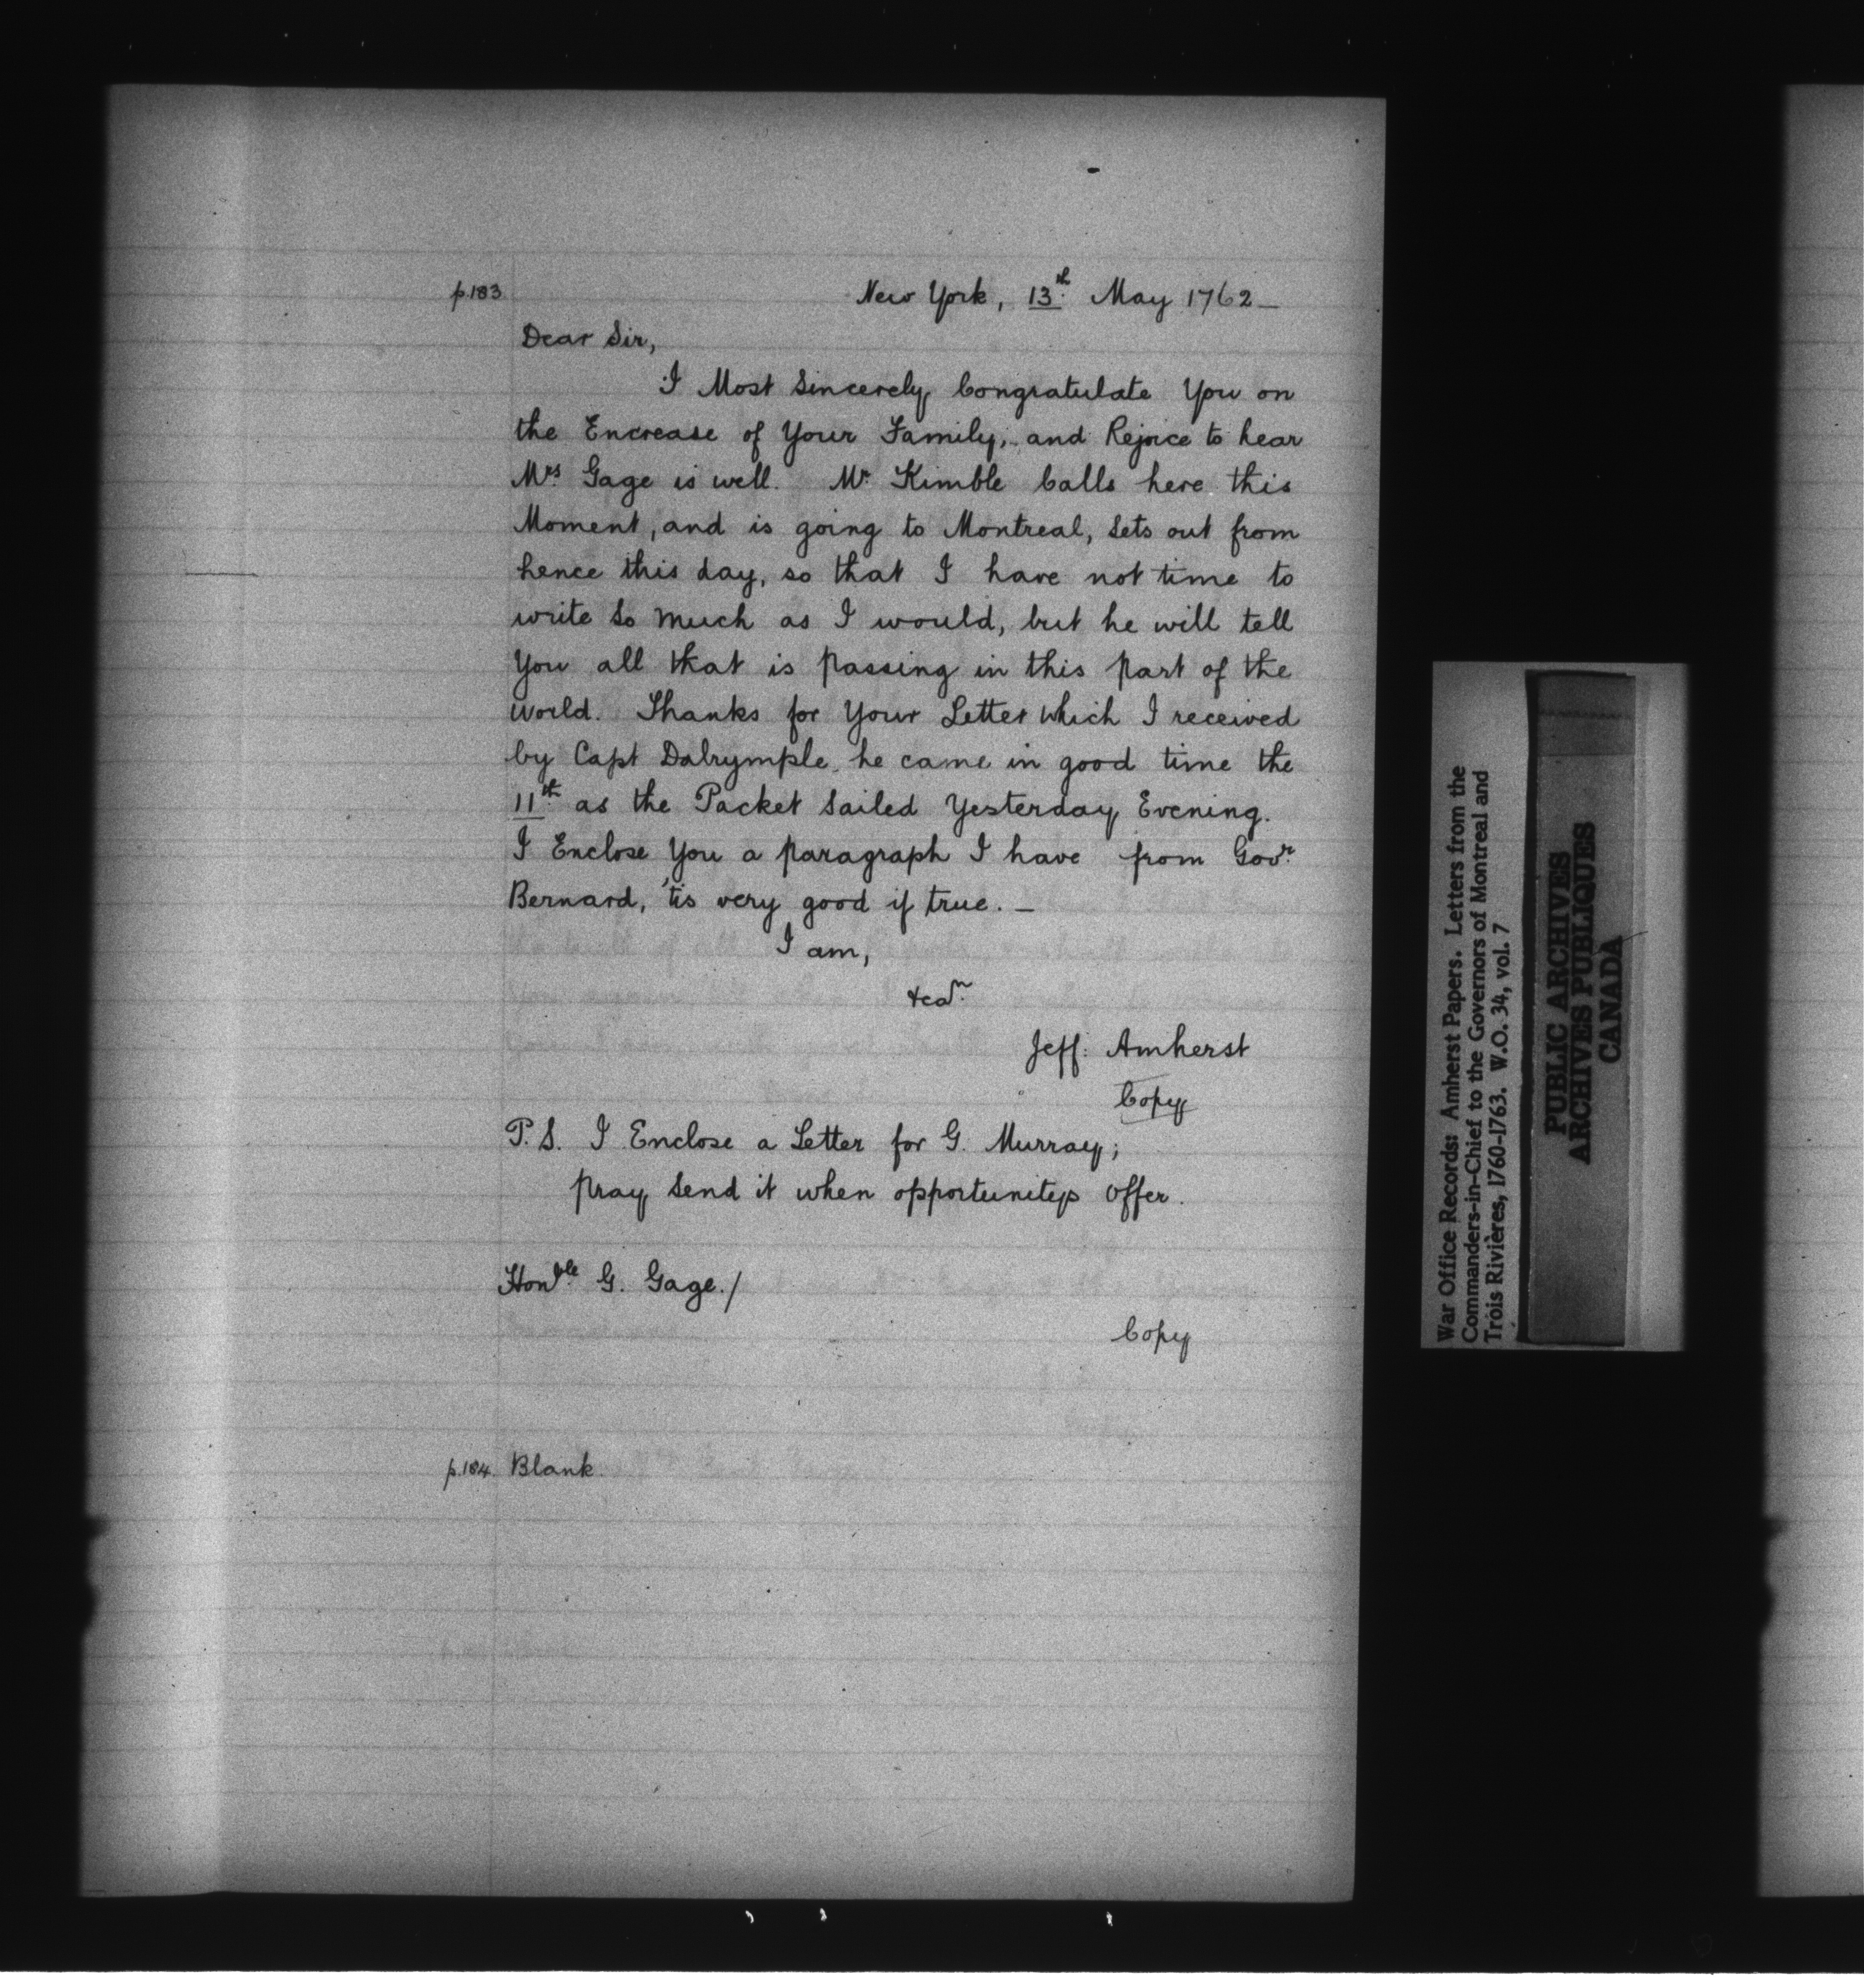 p.183 New York, 13th. May 1762 —
Dear Sir,
I Most Sincerely Congratulate You on
the Encrease of Your Family, and Rejoice to hear
Mrs. Gage is well. Mr. Kimble Calls here this
Moment, and is going to Montreal, Sets out from
hence this day, so that I have not time to
write So much as I would, but he will tell
You all that is passing in this part of the
World. Thanks for Your Letter which I received
by Capt Dalrymple, he came in good time the
11th. as the Packet Sailed Yesterday Evening.
I Enclose You a paragraph I have from Govr.
Bernard, 'tis very good if true. —
I am,
Jeff: Amherst
Copy
P.S. I Enclose a Letter for G. Murray;
pray Send it when opportunitys Offer.
Honble. G. Gage./
Copy
p.184. Blank.
War Office Records: Amherst Papers. Letters from the
Commanders-in-Chief to the Governors of Montreal and
Trois Rivières, 1760-1763. W.O. 34, vol. 7
PUBLIC ARCHIVES
ARCHIVES PUBLIQUES
CANADA